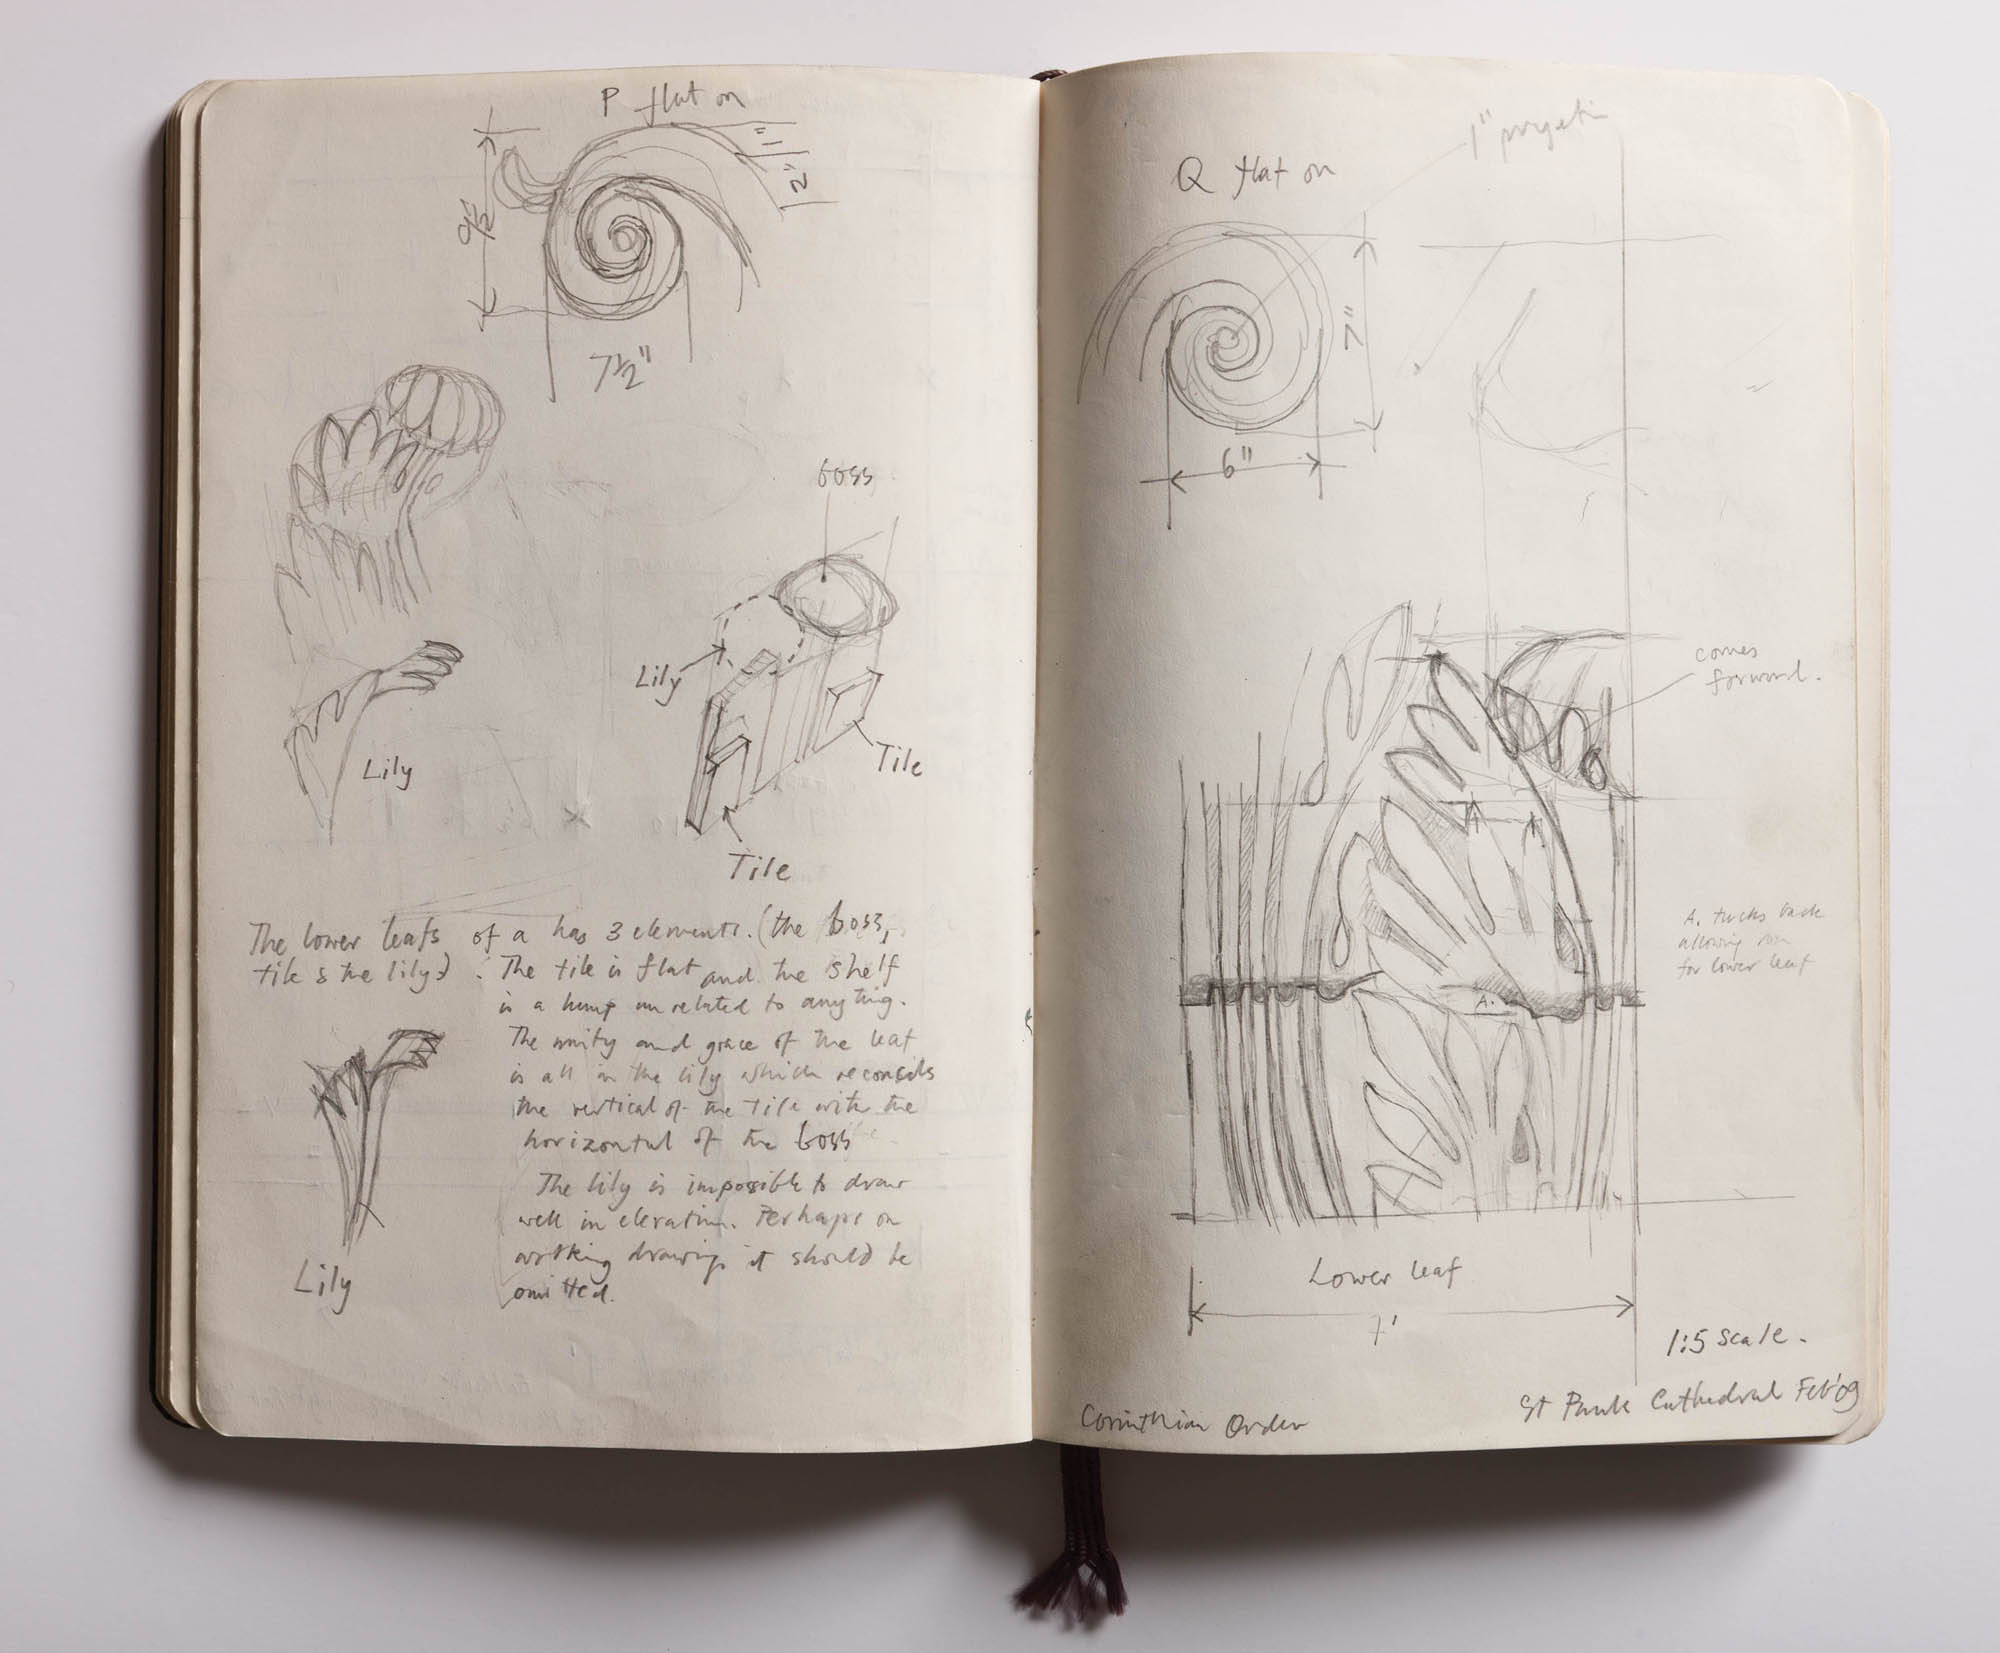 P flat on
9½
1"
2"
7½"
boss
Lily
Tile
Tile
Lily
The lower leafs of a has 3 elements. (the boss,
tile & the lily) . The tile is flat and the shelf
is a lump unrelated to anything.
The unity and grace of the leaf
is all in the lily which reconsils
the vertical of the tile with the
horizontal of the boss
The lily is impossible to draw
well in elevation. Perhaps on
working drawings it should be
omitted.
Lily
1"
Q flat on
7"
6"
comes
forward.
A. tucks back
allowing
for lower leaf
A.
Lower leaf
7'
1:5 scale.
Corinthian Order
St Pauls Cathedral Feb'09